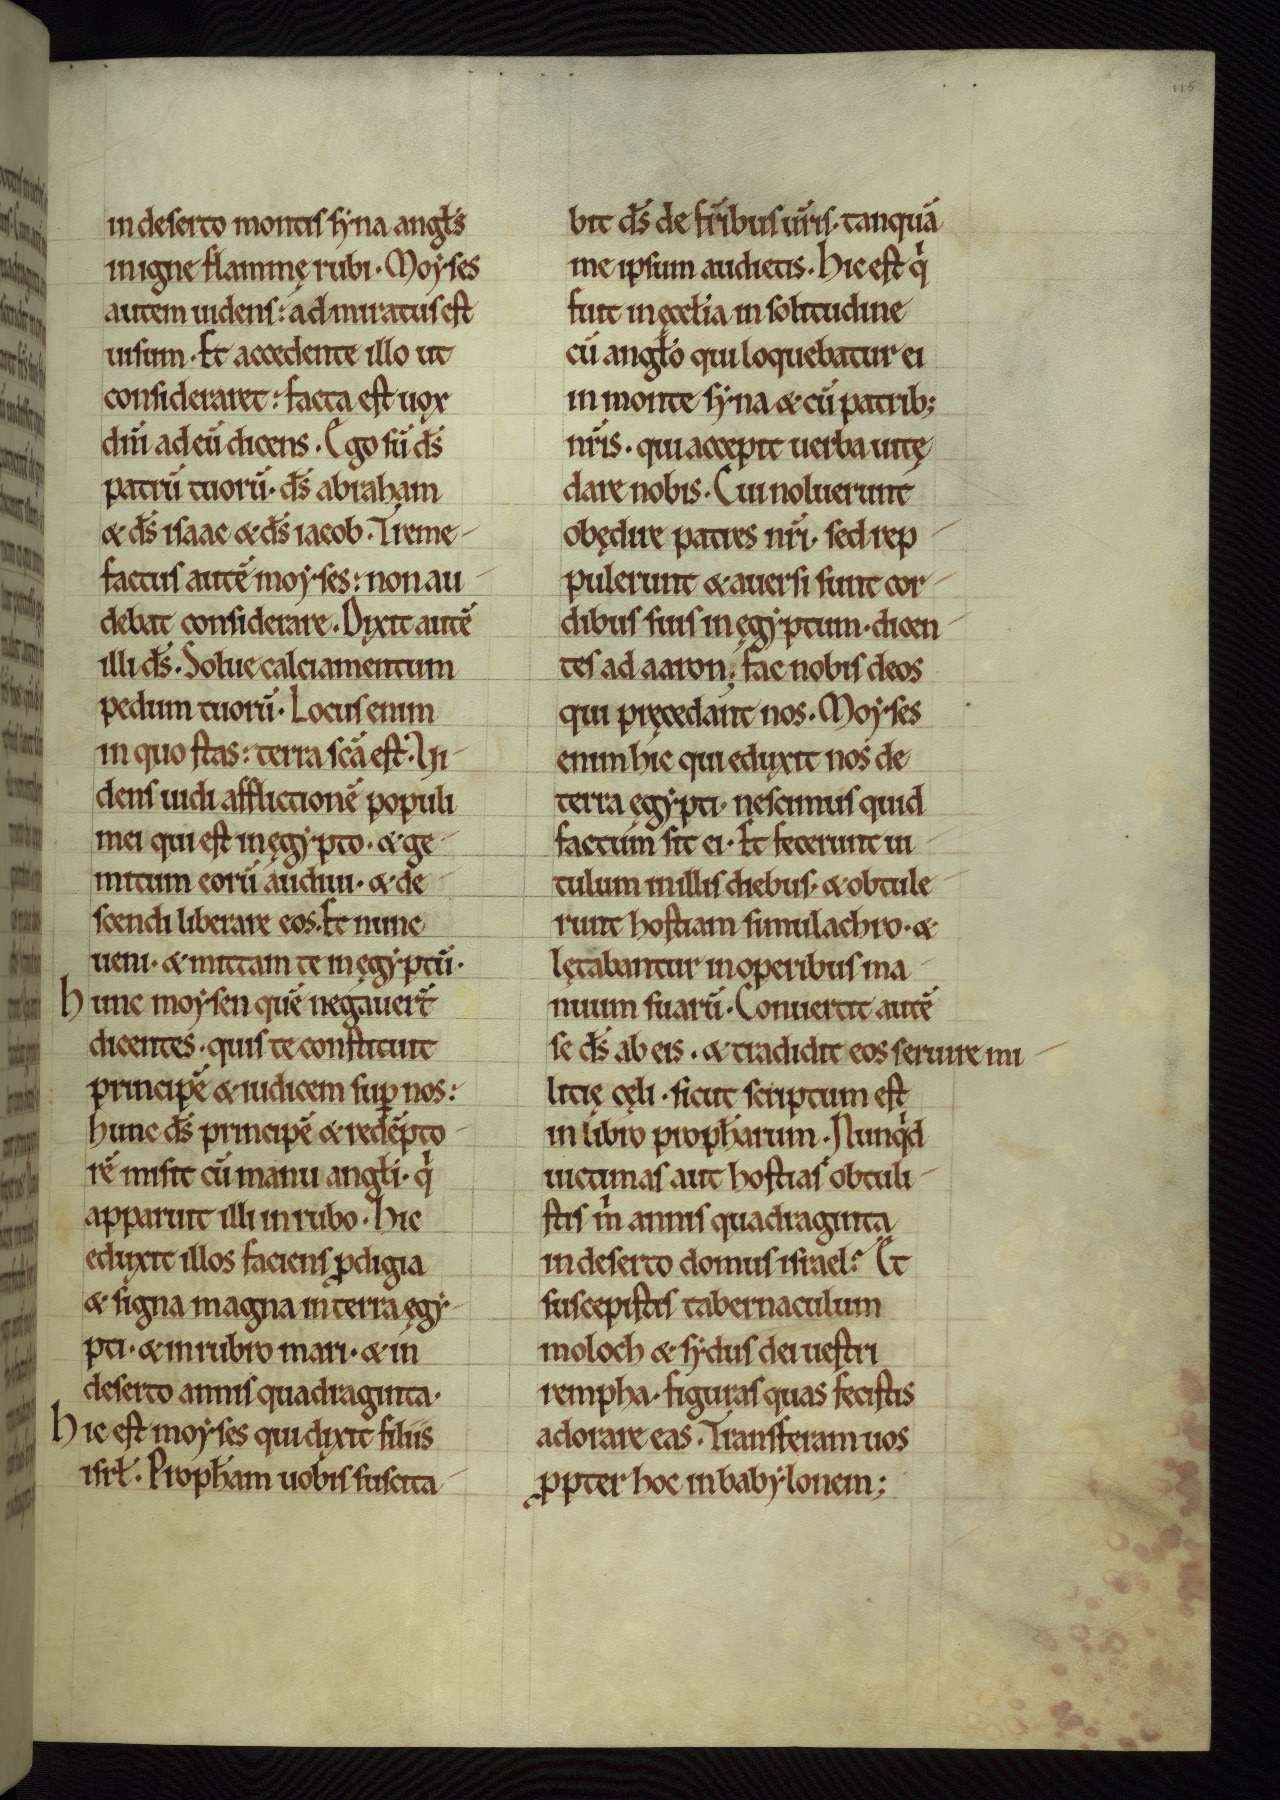 115
in deserto montis sẏna angl̄s
in igne flammę rubi. Moẏses
autem uidens: admiratus est
uisum. Et accedente illo ut
consideraret: facta est uox
dn̄i ad eū dicens. Ego sū d̄s
patrū tuorū. d̄s abraham
& d̄s isaac & d̄s iacob. Treme-
factus autē moẏses: non au-
debat considerare. Dixit autē
illi d̄s. Solue calciamentum
pedum tuorū. Locus enim
in quo stas: terra sc̄a est. Ui-
dens uidi afflictionē populi
mei qui est in ęgẏpto. & ge-
mitum eorū audiui. & de-
scendi liberare eos. Et nunc
ueni. & mittam te in ęgẏptū.
hunc moẏsen quē negauer̄t
dicentes. quis te constituit
principē & iudicem suꝑ nos:
hunc d̄s principē & redēpto-
rē misit cū manu angl̄i. qͥ
apparuit illi in rubo. Hic
eduxit illos faciens ꝓdigia
& signa magna in terra ęgẏ-
pti. & in rubro mari. & in
deserto annis quadraginta.
hic est moẏses qui dixit filiis
isrl̄. Proph̄am uobis suscita-
bit d̄s de fr̄ibus ur̄is. tanquā
me ipsum audietis. Hic est qͥ
fuit in ęccl̄ia in solitudine
cū angl̄o qui loquebatur ei
in monte sẏna & cū patrib;
nr̄is. qui accepit uerba uitę
dare nobis. Cui noluerunt
obędire patres nr̄i. sed rep-
pulerunt & auersi sunt cor-
dibus suis in ęgẏptum. dicen-
tes ad aaron; fac nobis deos
qui pręcedant nos. Moẏses
enim hic qui eduxit nos de
terra ęgẏpti. nescimus quid
factum sit ei. Et fecerunt ui-
tulum in illis diebus. & obtule-
runt hostiam simulachro. &
lętabantur in operibus ma-
nuum suarū. Conuertit autē
se d̄s ab eis. & tradidit eos seruire mi-
litię cęli. sicut scriptum est
in libro proph̄arum. Nunqͥd
uictimas aut hostias obtuli-
stis mͥ annis quadraginta
in deserto domus israel? Et
suscepistis tabernaculum
moloch & sẏdus dei uestri
rempha. figuras quas fecistis
adorare eas. Transferam uos
ꝓpter hoc in babẏlonem;